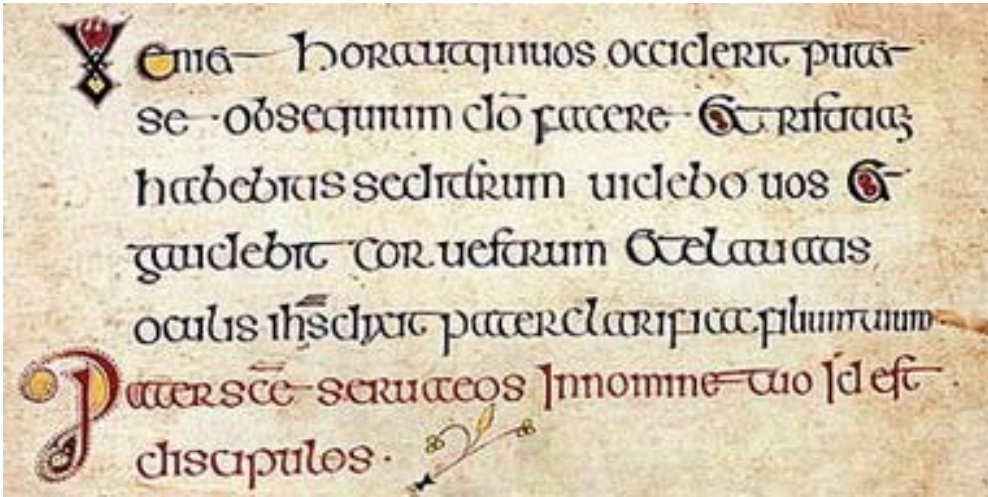 Venit hora ut qui uos occiderit putat
se · obsequium dō facere Et tristitiaꝫ
habebitis sed iterum uidebo uos Et
gaudebit cor uestrum Et eleuatis
oculis ih̅s dixit pater clarifica filium tuum ·
Pater sc̅e serua eos In nomine tuo Id est ·
discipulos ·